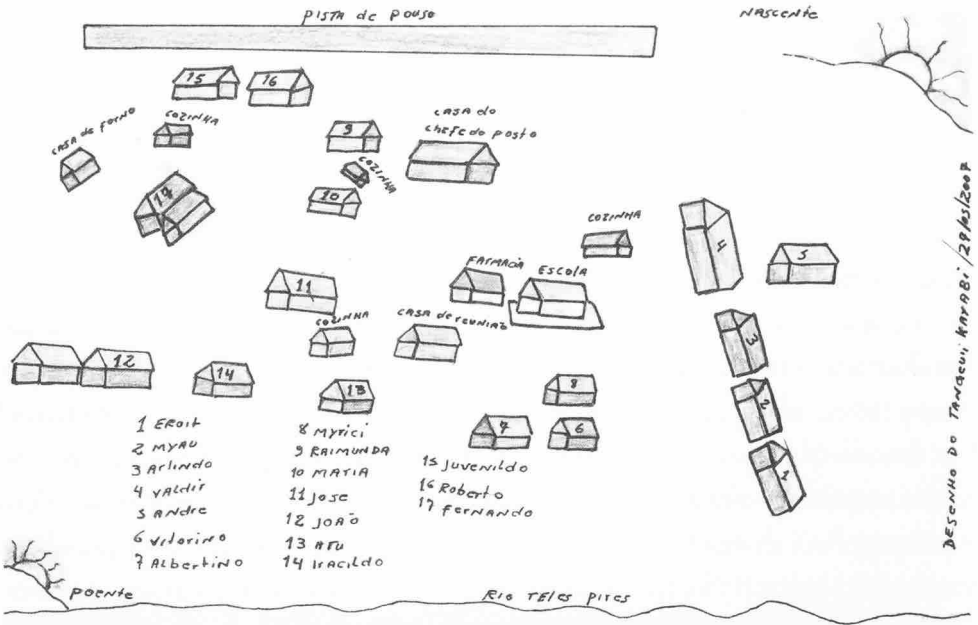 PISTA de POUSO
NASCENTE
15
16
CASA de FORNO
COZINHA
9
CASA do
CHEFE do POSTO
17
COZINHA
10
COZINHA
4
5
FARMACIA
ESCOLA
11
COZINHA
CASA de reuniao
3
12
14
13
8
2
7
6
1
1 EROIT
2 MYAU
3 Arlindo
4 VALdir
5 ANdre
6 vitorino
7 AlbertiNO
8 MYrici
9 RAIMUNDA
10 MARIA
11 Jose
12 JOÃO
13 ATU
14 Iracildo
15 Juvenildo
16 Roberto
17 Fernando
POENTE
RIO TELES PIRES
DESENHO DO TANGEUI KAYABI / 29/05/2007